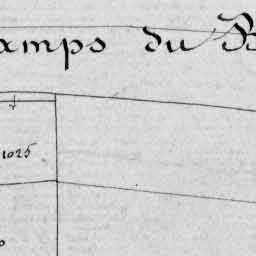 amps du B
1025